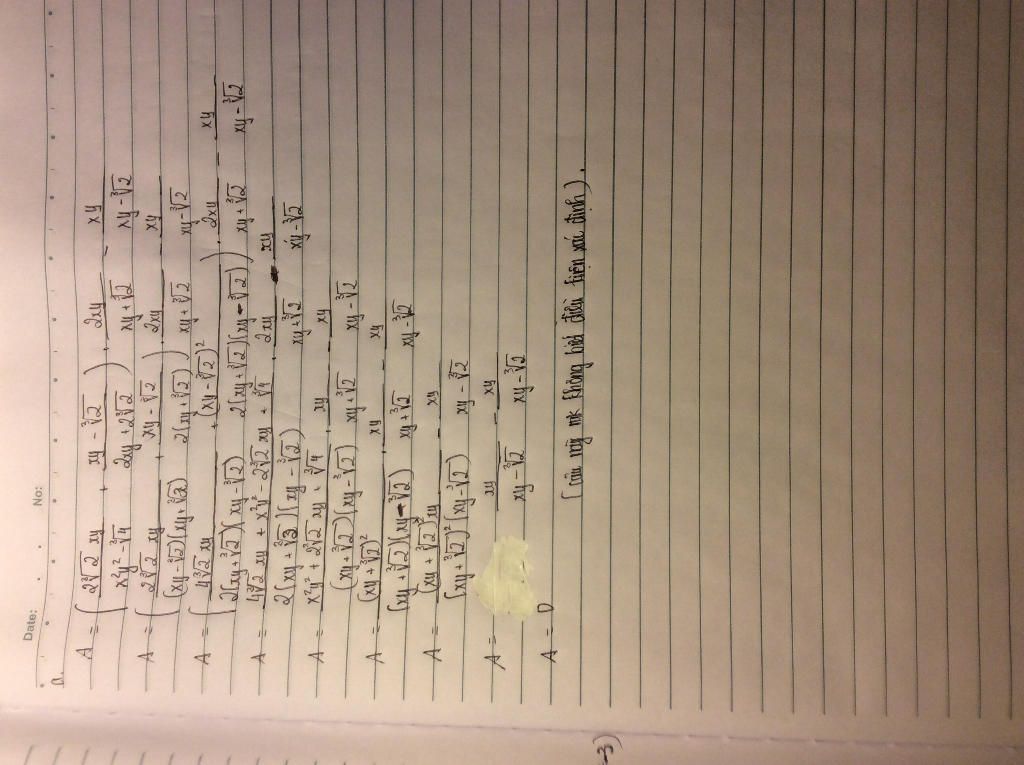 Date: No:
a.
A = ( 2∛2 xy / x²y² - ∛4 + xy - ∛2 / 2xy + 2∛2 ) . 2xy / xy + ∛2 - xy / xy - ∛2
A = ( 2∛2 xy / (xy - ∛2)(xy + ∛2) + xy - ∛2 / 2(xy + ∛2) ) . 2xy / xy + ∛2 - xy / xy - ∛2
A = ( 4∛2 xy / 2(xy + ∛2)(xy - ∛2) + (xy - ∛2)² / 2(xy + ∛2)(xy - ∛2) ) . 2xy / xy + ∛2 - xy / xy - ∛2
A = 4∛2 xy + x²y² - 2∛2 xy + ∛4 / 2(xy + ∛2)(xy - ∛2) . 2xy / xy + ∛2 - xy / xy - ∛2
A = x²y² + 2∛2 xy + ∛4 / (xy + ∛2)(xy - ∛2) . xy / xy + ∛2 - xy / xy - ∛2
A = (xy + ∛2)² / (xy + ∛2)(xy - ∛2) . xy / xy + ∛2 - xy / xy - ∛2
A = (xy + ∛2)² xy / (xy + ∛2)² (xy - ∛2) - xy / xy - ∛2
A = xy / xy - ∛2 - xy / xy - ∛2
A = 0
(câu này mk không biết điều kiện xác định).
-3)